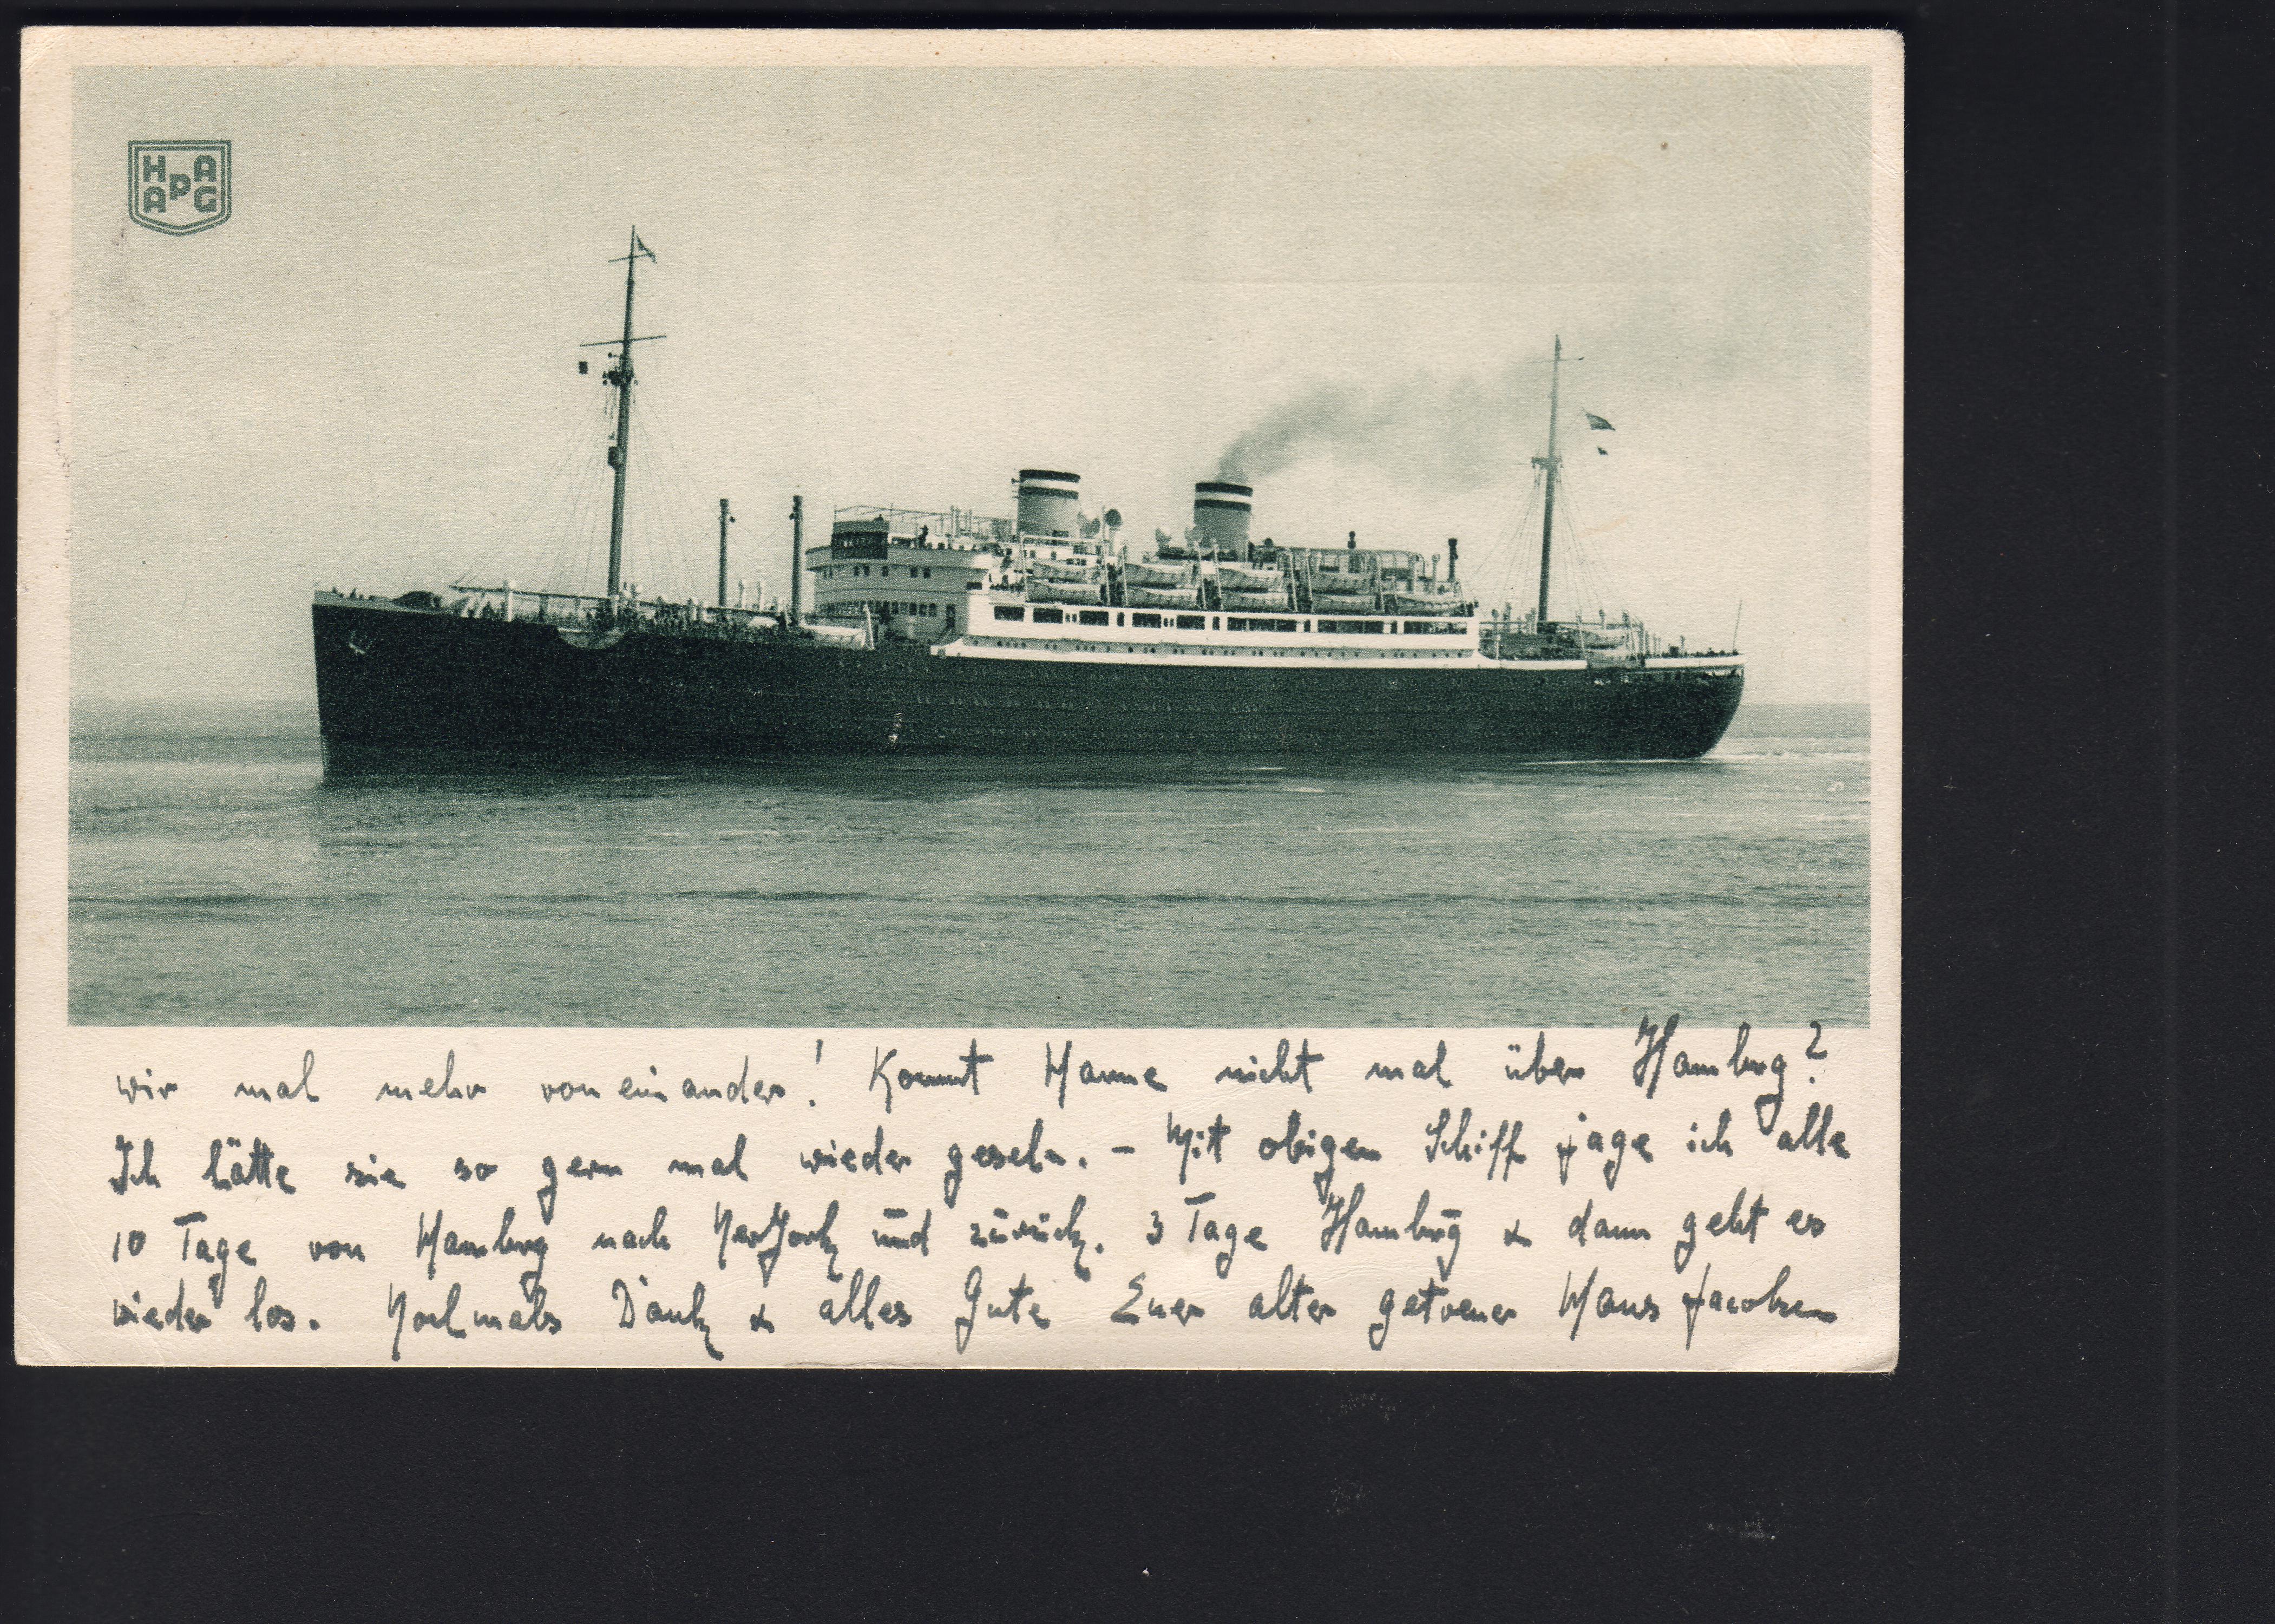 HAPAG
wir mal mehr voneinander! Kommt Hanne nicht mal über Hamburg?
Ich hätte sie so gern mal wieder gesehn. - Mit obigem Schiff jage ich alle
10 Tage von Hamburg nach NewYork und zurück. 3 Tage Hamburg & dann geht es
wieder los. Nochmals Dank & alles Gute Euer alter getreuer Hans Jacobsen